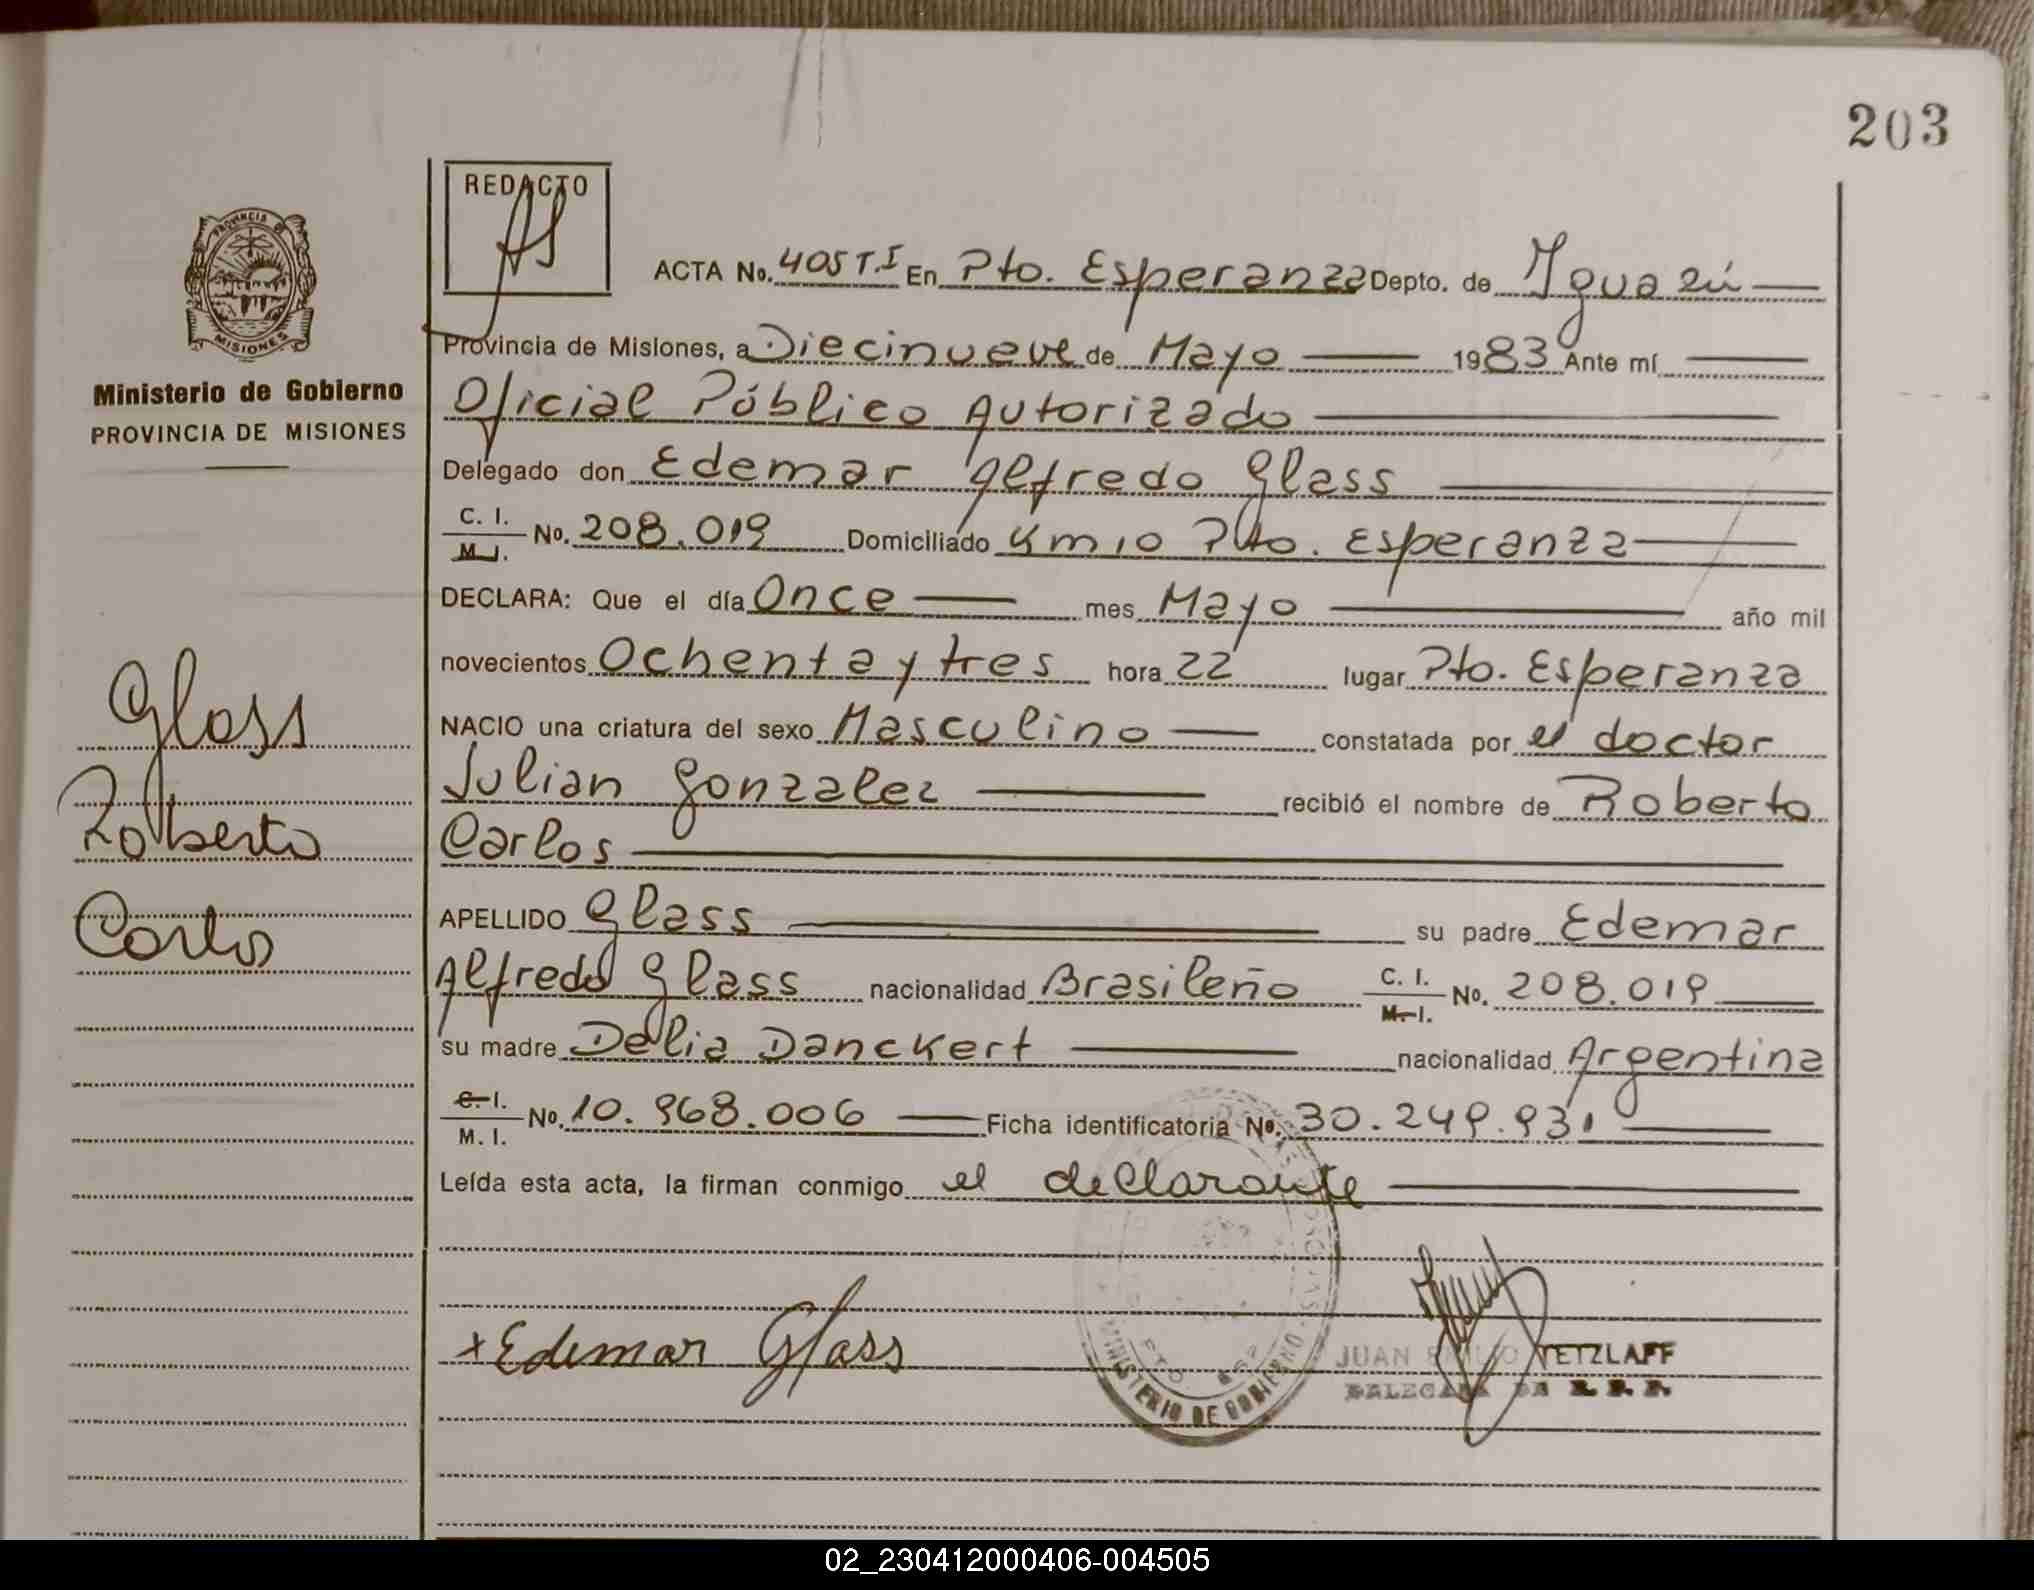 203
REDACTO
ACTA No. 405 T.I En Pto. Esperanza Depto. de Iguazú
Provincia de Misiones, a Diecinueve de Mayo 1983 Ante mí
Oficial Público Autorizado
Delegado don Edemar Alfredo Glass
C. I. M. I. No. 208.019 Domiciliado Km 10 Pto. Esperanza
DECLARA: Que el día Once mes Mayo año mil
novecientos Ochenta y tres hora 22 lugar Pto. Esperanza
NACIO una criatura del sexo Masculino constatada por el doctor
Julian Gonzalez recibió el nombre de Roberto
Carlos
APELLIDO Glass su padre Edemar
Alfredo Glass nacionalidad Brasileño C. I. M. I. No. 208.019
su madre Delia Danckert nacionalidad Argentina
C. I. M. I. No. 10.968.006 Ficha identificatoria No. 30.249.931
Leída esta acta, la firman conmigo el declarante
x Edemar Glass
JUAN EMILIO TETZLAFF
MINISTERIO DE GOBIERNO
PROVINCIA DE MISIONES
Ministerio de Gobierno
PROVINCIA DE MISIONES
Glass
Roberto
Carlos
02_230412000406-004505